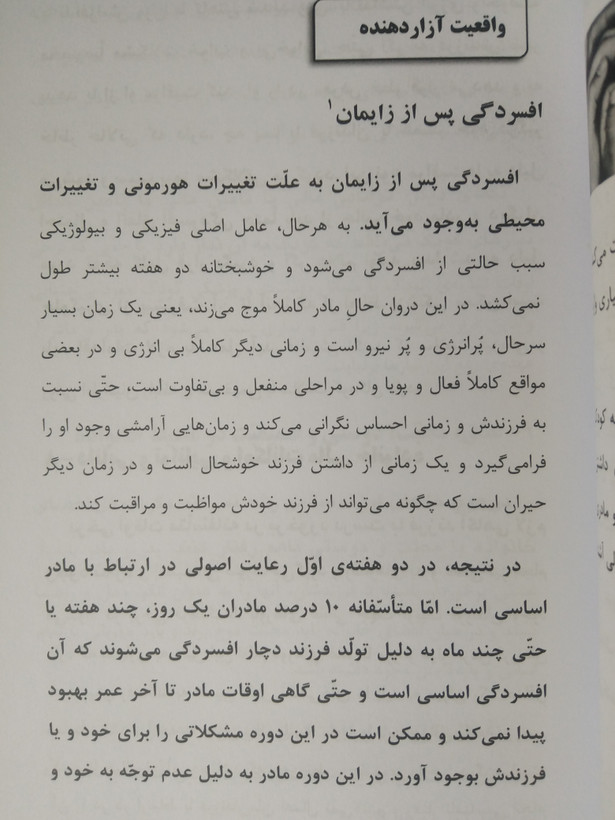 واقعیت آزاردهنده
افسردگی پس از زایمان۱
افسردگی پس از زایمان به علّت تغییرات هورمونی و تغییرات
محیطی به‌وجود می‌آید. به هرحال، عامل اصلی فیزیکی و بیولوژیکی
سبب حالتی از افسردگی می‌شود و خوشبختانه دو هفته بیشتر طول
نمی‌کشد. در این دروان حالِ مادر کاملاً موج می‌زند، یعنی یک زمان بسیار
سرحال، پُرانرژی و پُر نیرو است و زمانی دیگر کاملاً بی انرژی و در بعضی
مواقع کاملاً فعال و پویا و در مراحلی منفعل و بی‌تفاوت است، حتّی نسبت
به فرزندش و زمانی احساس نگرانی می‌کند و زمان‌هایی آرامشی وجود او را
فرامی‌گیرد و یک زمانی از داشتن فرزند خوشحال است و در زمان دیگر
حیران است که چگونه می‌تواند از فرزند خودش مواظبت و مراقبت کند.
در نتیجه، در دو هفته‌ی اوّل رعایت اصولی در ارتباط با مادر
اساسی است. امّا متأسّفانه ۱۰ درصد مادران یک روز، چند هفته یا
حتّی چند ماه به دلیل تولّد فرزند دچار افسردگی می‌شوند که آن
افسردگی اساسی است و حتّی گاهی اوقات مادر تا آخر عمر بهبود
پیدا نمی‌کند و ممکن است در این دوره مشکلاتی را برای خود و یا
فرزندش بوجود آورد. در این دوره مادر به دلیل عدم توجّه به خود و